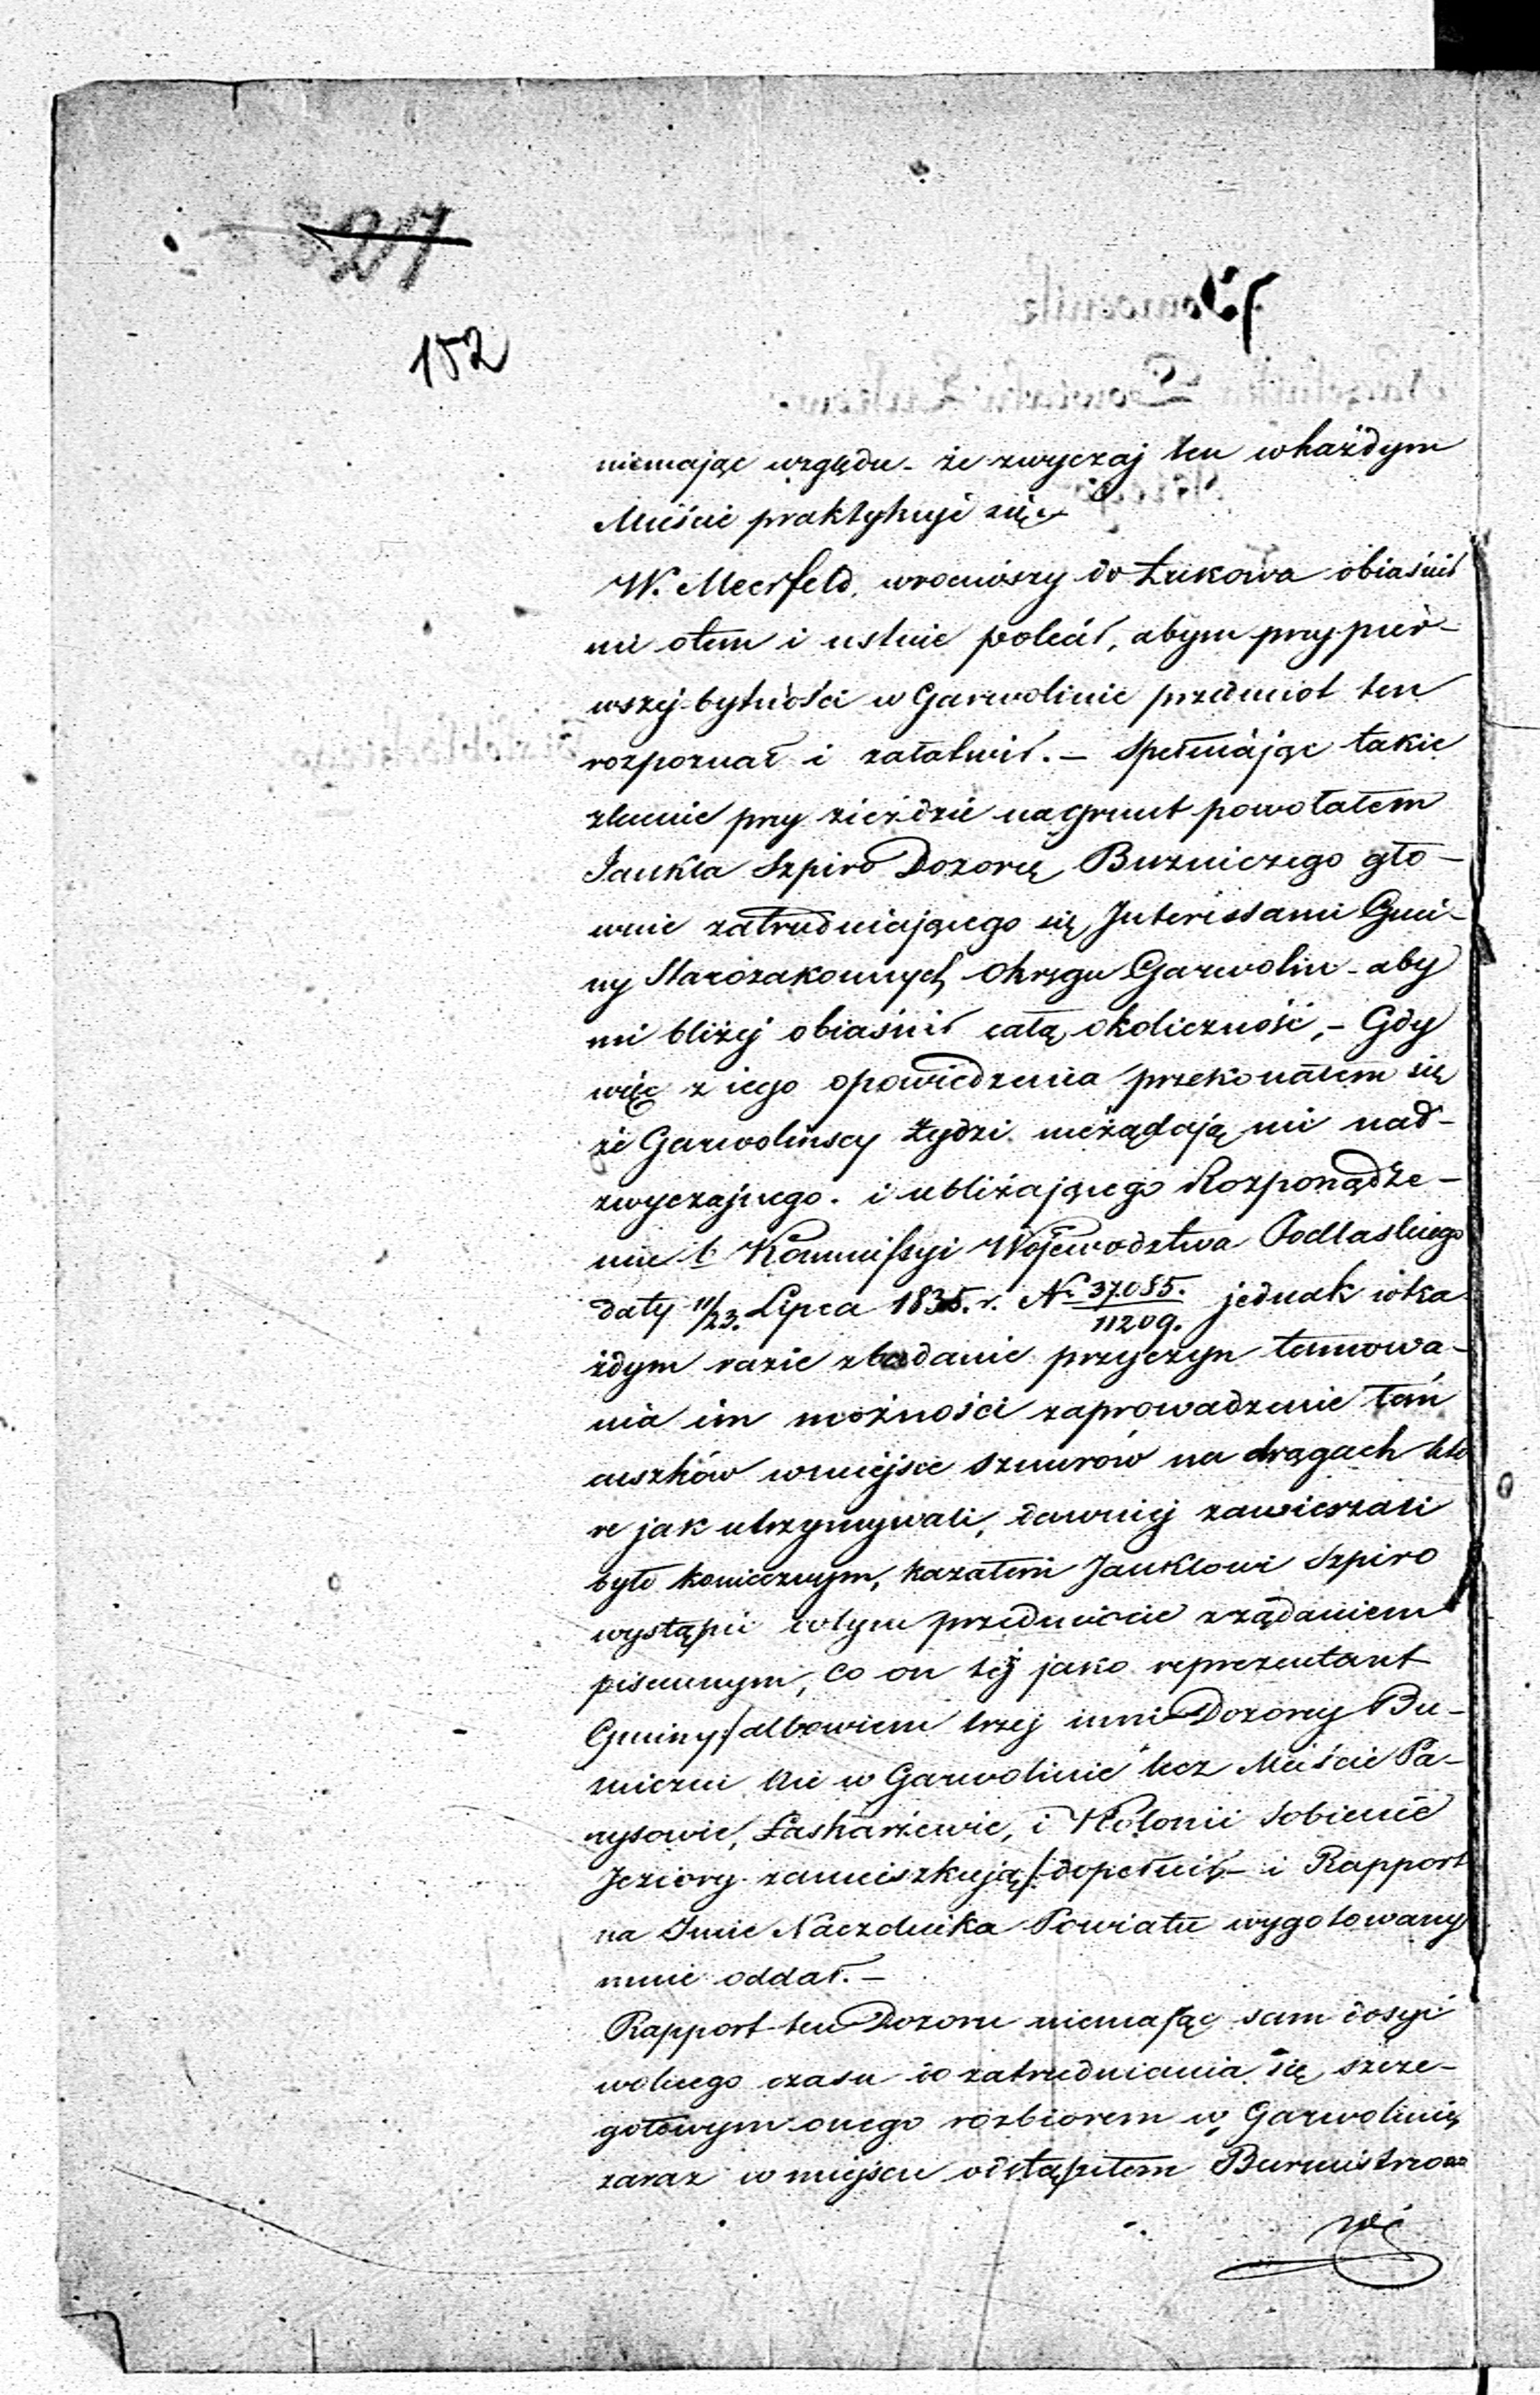 27
152
niemając względu - że zwyczaj ten w każdym
Mieście praktykuje się
W. Meerfeld wrociwszy do Łukowa obiaśnił
mi otem i ustnie polecił, abym przy pier-
wszej bytności w Garwolinie przedmiot ten
rozpoznał i załatwił. - Spełniając takie
zlecenie przy zieździe na grunt powołałem
Jankla Szpiro Dozorcę Bużniczego głó-
wnie zatrudniającego się Interessami Gmi-
ny Starozakonnych Okręgu Garwolin - aby
mi bliżej obiaśnił całą okoliczność, - Gdy
więc z iego opowiedzenia przekonałem się
że Garwolinscy Żydzi nieżądają nic nad-
zwyczajnego i ubliżającego Rozporządze-
niu b. Kommissyi Województwa Podlaskiego
daty 11/23. Lipca 1835. r. N° 37085./11209. jednak w ka-
żdym razie zbadanie przyczyn tamowa-
nia im możności zaprowadzenie łań
cuszków w miejsce sznurów na drągach któ
re jak utrzymywali, dawniej zawieszali
było koniecznym, kazałem Janklowi Szpiro
wystąpić w tym przedmiocie z żądaniem
pismnym, co on tej jako reprezentant
Gminy /albowiem trzej inni Dozorcy Bu-
żniczni nie w Garwolinie lecz Mieście Pa-
rysowie, Łaskarżewie, i Kolonii Sobienie
Jeziory zamieszkują/ dopełnił - i Rapport
na Imie Naczelnika Powiatu wygotowany
mnie oddał. -
Rapport ten Dozoru niemając sam dosyć
wolnego czasu do zatrudniania się szcze-
gółowym onego rozbiorem w Garwolinie
zaraz w miejscu odstąpiłem Burmistrzo=
wi